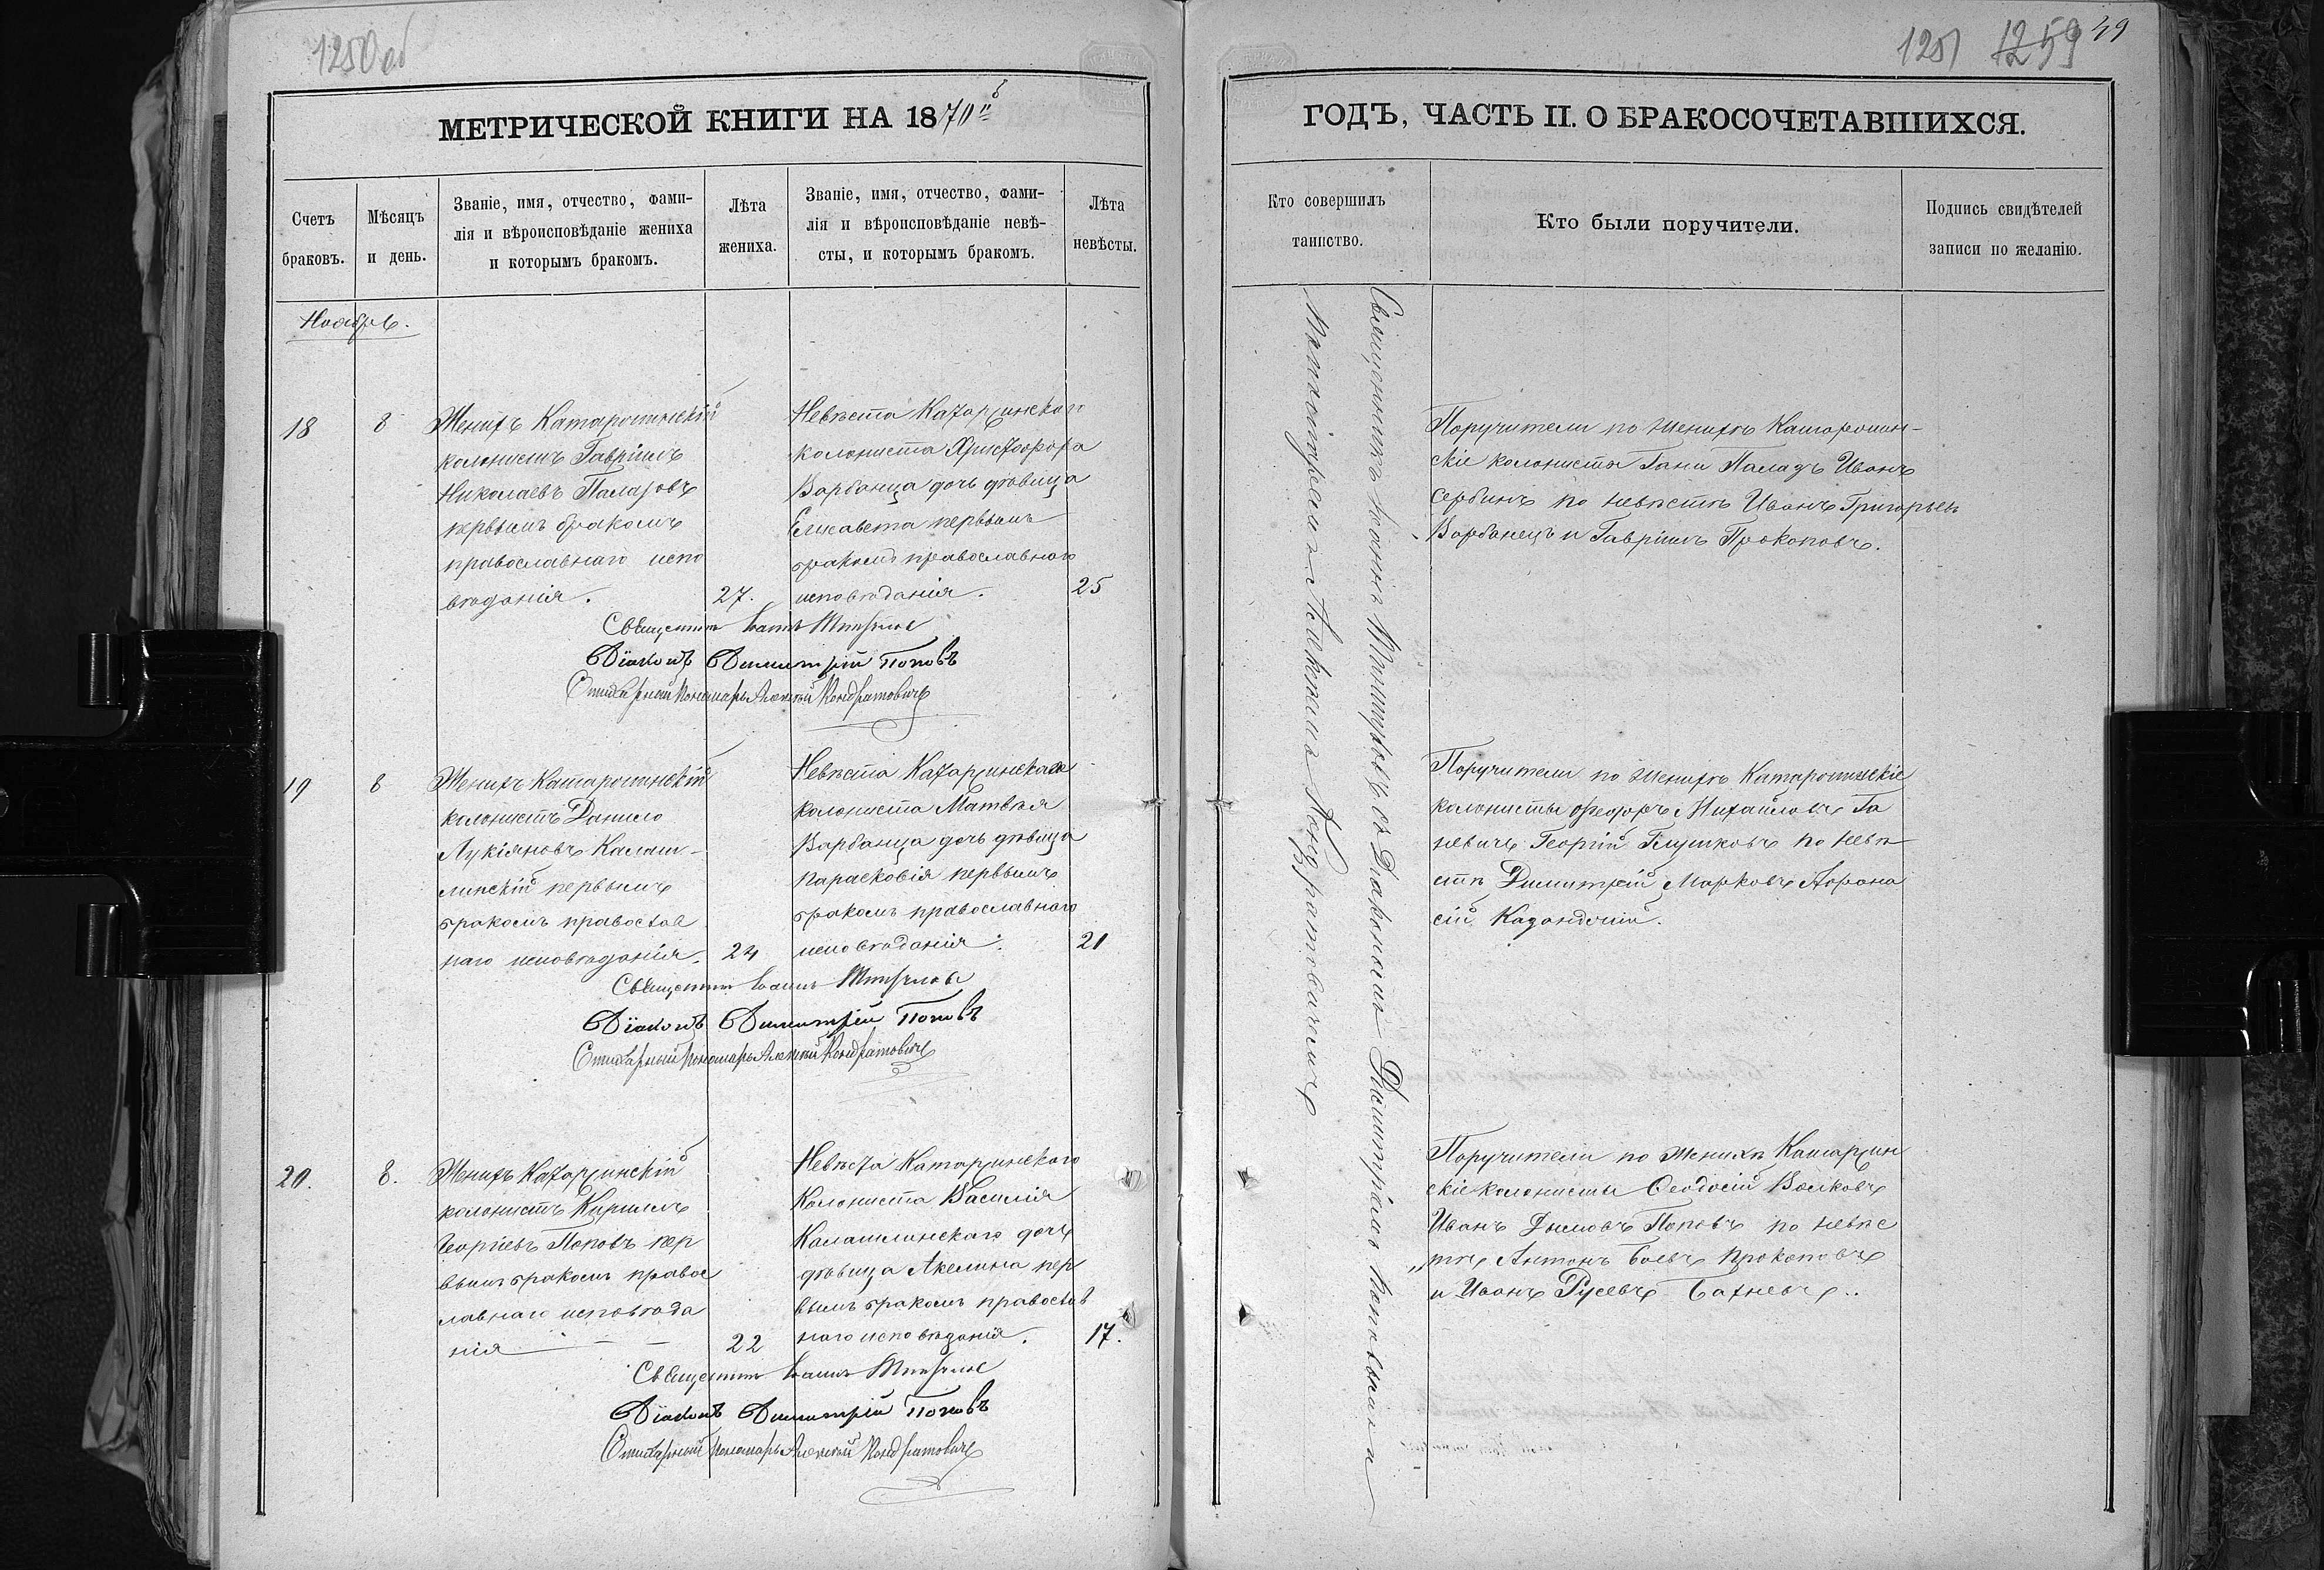 1250об
1251 1259 49
МЕТРИЧЕСКОЙ КНИГИ НА 1870й
ГОДЪ, ЧАСТЬ II. О БРАКОСОЧЕТАВШИХСЯ.
Счетъ браковъ.
Мѣсяцъ и день.
Званіе, имя, отчество, фами-
лія и вѣроисповѣданіе жениха
и которымъ бракомъ.
Лѣта
жениха.
Званіе, имя, отчество, фами-
лія и вѣроисповѣданіе невѣ-
сты, и которымъ бракомъ.
Лѣта
невѣсты.
Кто совершилъ
таинство.
Кто были поручители.
Подпись свидѣтелей
записи по желанію.
Ноябрь.
18
8
Женихъ Катаржинскій
колонистъ Гавріилъ
Николаевъ Палазовъ
первымъ бракомъ
православнаго испо
вѣданія.
27.
Невѣста Катаржинскаго
колониста Христофора
Варбанца дочь дѣвица
Елисавета первымъ
бракомъ православнаго
исповѣданія.
25
Священникъ Іоаннъ
Діаконъ Димитрій Поповъ
Стихарный Пономарь Алексѣй Кондратовичъ
19
8
Женихъ Катаржинскій
колонистъ Данило
Лукіяновъ Калаш-
линскій первымъ
бракомъ православ
наго исповѣданія.
24
Невѣста Катаржинскаго
колониста Матвѣя
Варбанца дочь дѣвица
Парасковія первымъ
бракомъ православнаго
исповѣданія.
21
Священникъ Іоаннъ
Діаконъ Димитрій Поповъ
Стихарный Пономарь Алексѣй Кондратовичъ
20.
8.
Женихъ Катаржинскій
колонистъ Кириллъ
Георгіевъ Поповъ пер
вымъ бракомъ правос
лавнаго исповѣда
нія
22
Невѣста Катаржинскаго
Колониста Василія
Калашлинскаго дочь
дѣвица Акелина пер
вымъ бракомъ православ
наго исповѣданія.
17.
Священникъ Іоаннъ
Діаконъ Димитрій Поповъ
Стихарный Пономарь Алексѣй Кондратовичъ
Священникъ Іоаннъ съ Діакономъ Димитріемъ Поповымъ и
Пономаремъ Алексѣемъ Кондратовичемъ
Поручители по женихѣ Катаржин-
скіе колонисты Гани Палазъ Иванъ
Сербинъ по невѣстѣ Иванъ Григорьевъ
Варбанецъ и Гавріилъ Прокоповъ.
Поручители по женихѣ Катаржинскіе
колонисты Феодоръ Михайловъ Га
невичъ Георгій Глушковъ по невѣ
стѣ Димитрій Марковъ Афана
сій
Поручители по женихѣ Катаржин
скіе колонисты Феодосій Волковъ
Иванъ Дымовъ Поповъ по невѣс
тѣ Антонъ Боевъ Прокоповъ
и Иванъ Русевъ